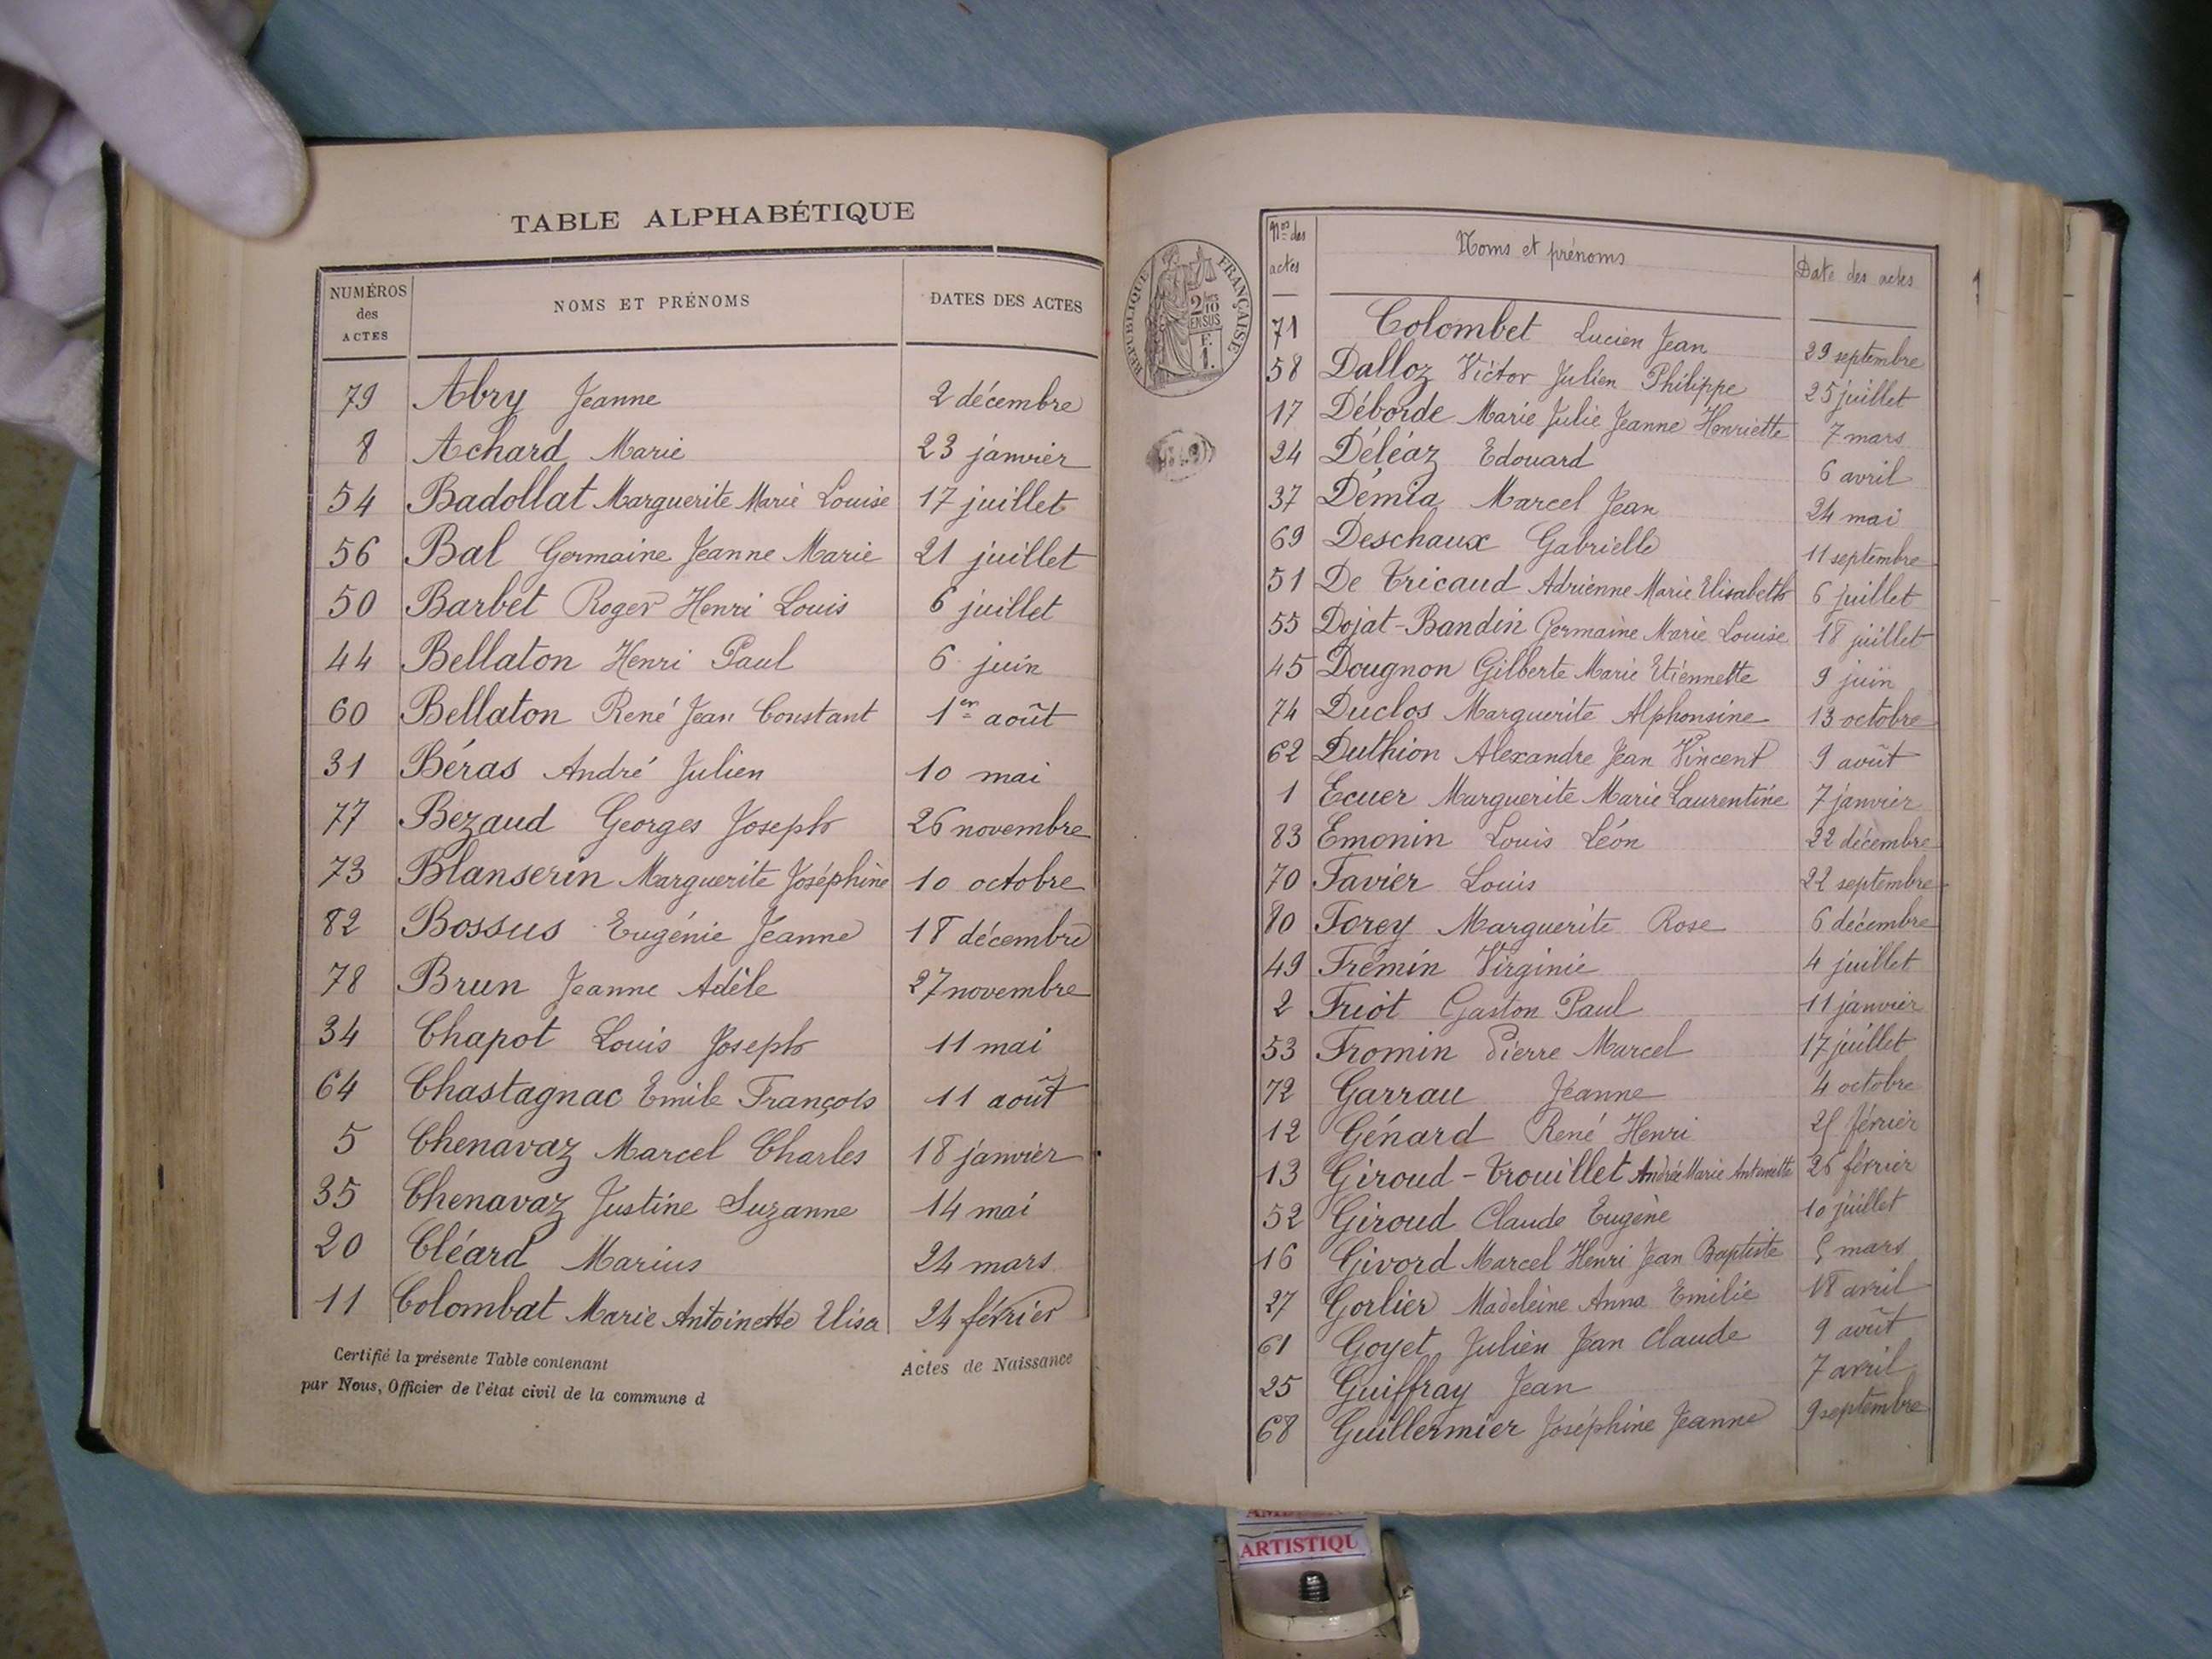 TABLE ALPHABÉTIQUE
NUMÉROS des ACTES NOMS ET PRÉNOMS DATES DES ACTES
79 Abry Jeanne 2 décembre
8 Achard Marie 23 janvier
54 Badollat Marguerite Marie Louise 17 juillet
56 Bal Germaine Jeanne Marie 21 juillet
50 Barbet Roger Henri Louis 6 juillet
44 Bellaton Henri Paul 6 juin
60 Bellaton René Jean Constant 1er août
31 Béras André Julien 10 mai
77 Bezaud Georges Joseph 26 novembre
73 Blanserin Marguerite Joséphine 10 octobre
82 Bossus Eugénie Jeanne 18 décembre
78 Brun Jeanne Adèle 27 novembre
34 Chapot Louis Joseph 11 mai
64 Chastagnac Emile François 11 août
5 Chenavaz Marcel Charles 18 janvier
35 Chenavaz Justine Suzanne 14 mai
20 Cléard Marius 24 mars
11 Colombat Marie Antoinette Elisa 24 février
Certifié la présente Table contenant Actes de Naissance
par Nous, Officier de l'état civil de la commune d
RÉPUBLIQUE FRANÇAISE
2/10 EN SUS
F.
1.
Nos des actes Noms et prénoms Date des actes
71 Colombet Lucien Jean 29 septembre
58 Dalloz Victor Julien Philippe 25 juillet
17 Déborde Marie Julie Jeanne Henriette 7 mars
24 Déléaz Edouard 6 avril
37 Démia Marcel Jean 24 mai
69 Deschaux Gabrielle 11 septembre
51 De Tricaud Adrienne Marie Elisabeth 6 juillet
55 Dojat-Bandin Germaine Marie Louise 18 juillet
45 Dougnon Gilberte Marie Etiennette 9 juin
74 Duclos Marguerite Alphonsine 13 octobre
62 Duthion Alexandre Jean Vincent 9 août
1 Ecuer Marguerite Marie Laurentine 7 janvier
83 Emonin Louis Léon 22 décembre
70 Favier Louis 22 septembre
80 Forey Marguerite Rose 6 décembre
49 Fremin Virginie 4 juillet
2 Friot Gaston Paul 11 janvier
53 Fromin Pierre Marcel 17 juillet
72 Garrau Jeanne 4 octobre
12 Génard René Henri 25 février
13 Giroud-Trouillet Andrée Marie Antoinette 26 février
52 Giroud Claude Eugène 10 juillet
16 Givord Marcel Henri Jean Baptiste 5 mars
27 Gorlier Madeleine Anna Emilie 18 avril
61 Goyet Julien Jean Claude 9 août
25 Guiffray Jean 7 avril
68 Guillermier Joséphine Jeanne 9 septembre
ARTISTIQU